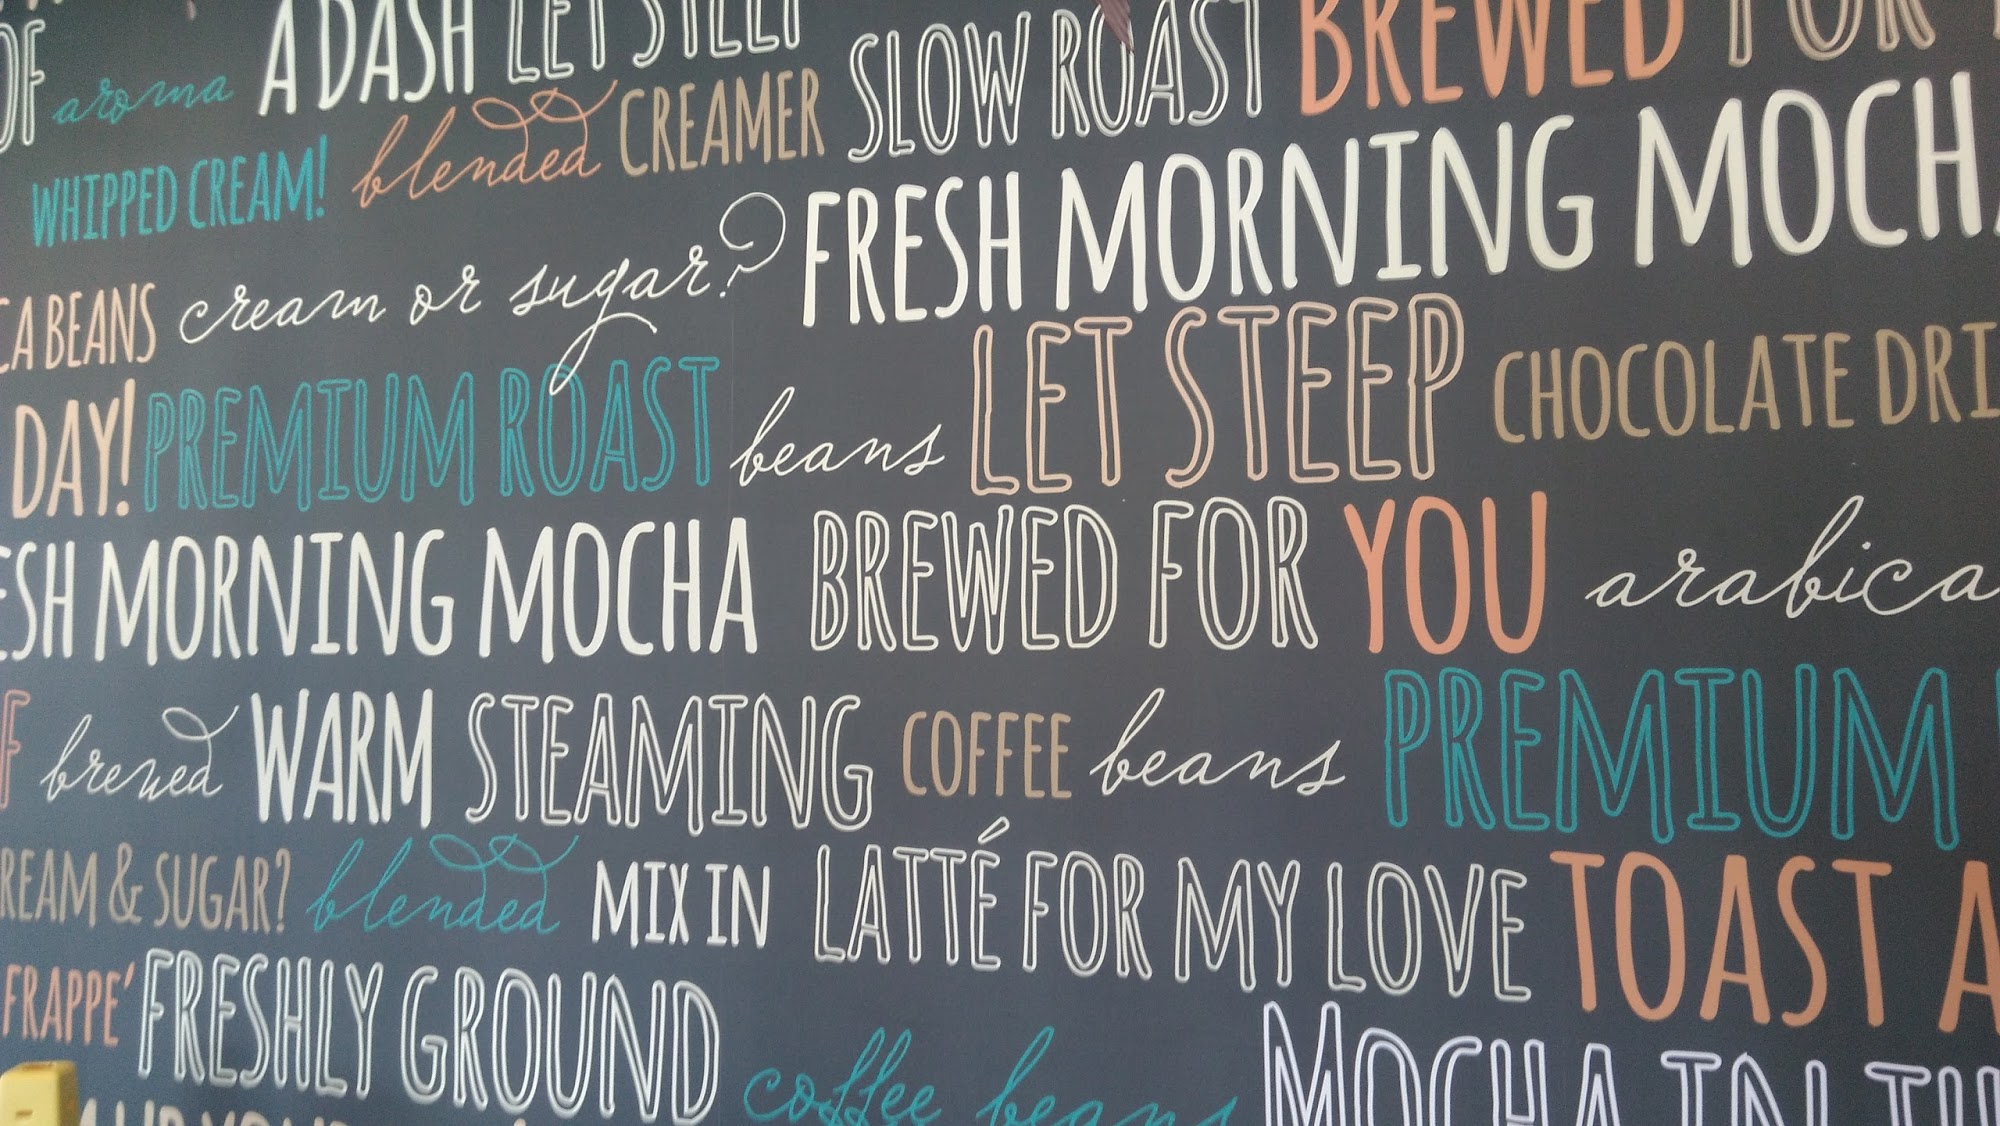 OF aroma A DASH LET STEEP SLOW ROAST BREWED FOR
WHIPPED CREAM! blended CREAMER
CA BEANS cream or sugar? FRESH MORNING MOCHA
DAY! PREMIUM ROAST beans LET STEEP CHOCOLATE DRI
ESH MORNING MOCHA BREWED FOR YOU arabica
F brewed WARM STEAMING COFFEE beans PREMIUM
REAM & SUGAR? blended MIX IN LATTÉ FOR MY LOVE TOAST A
FRAPPE' FRESHLY GROUND coffee beans MOCHA IN